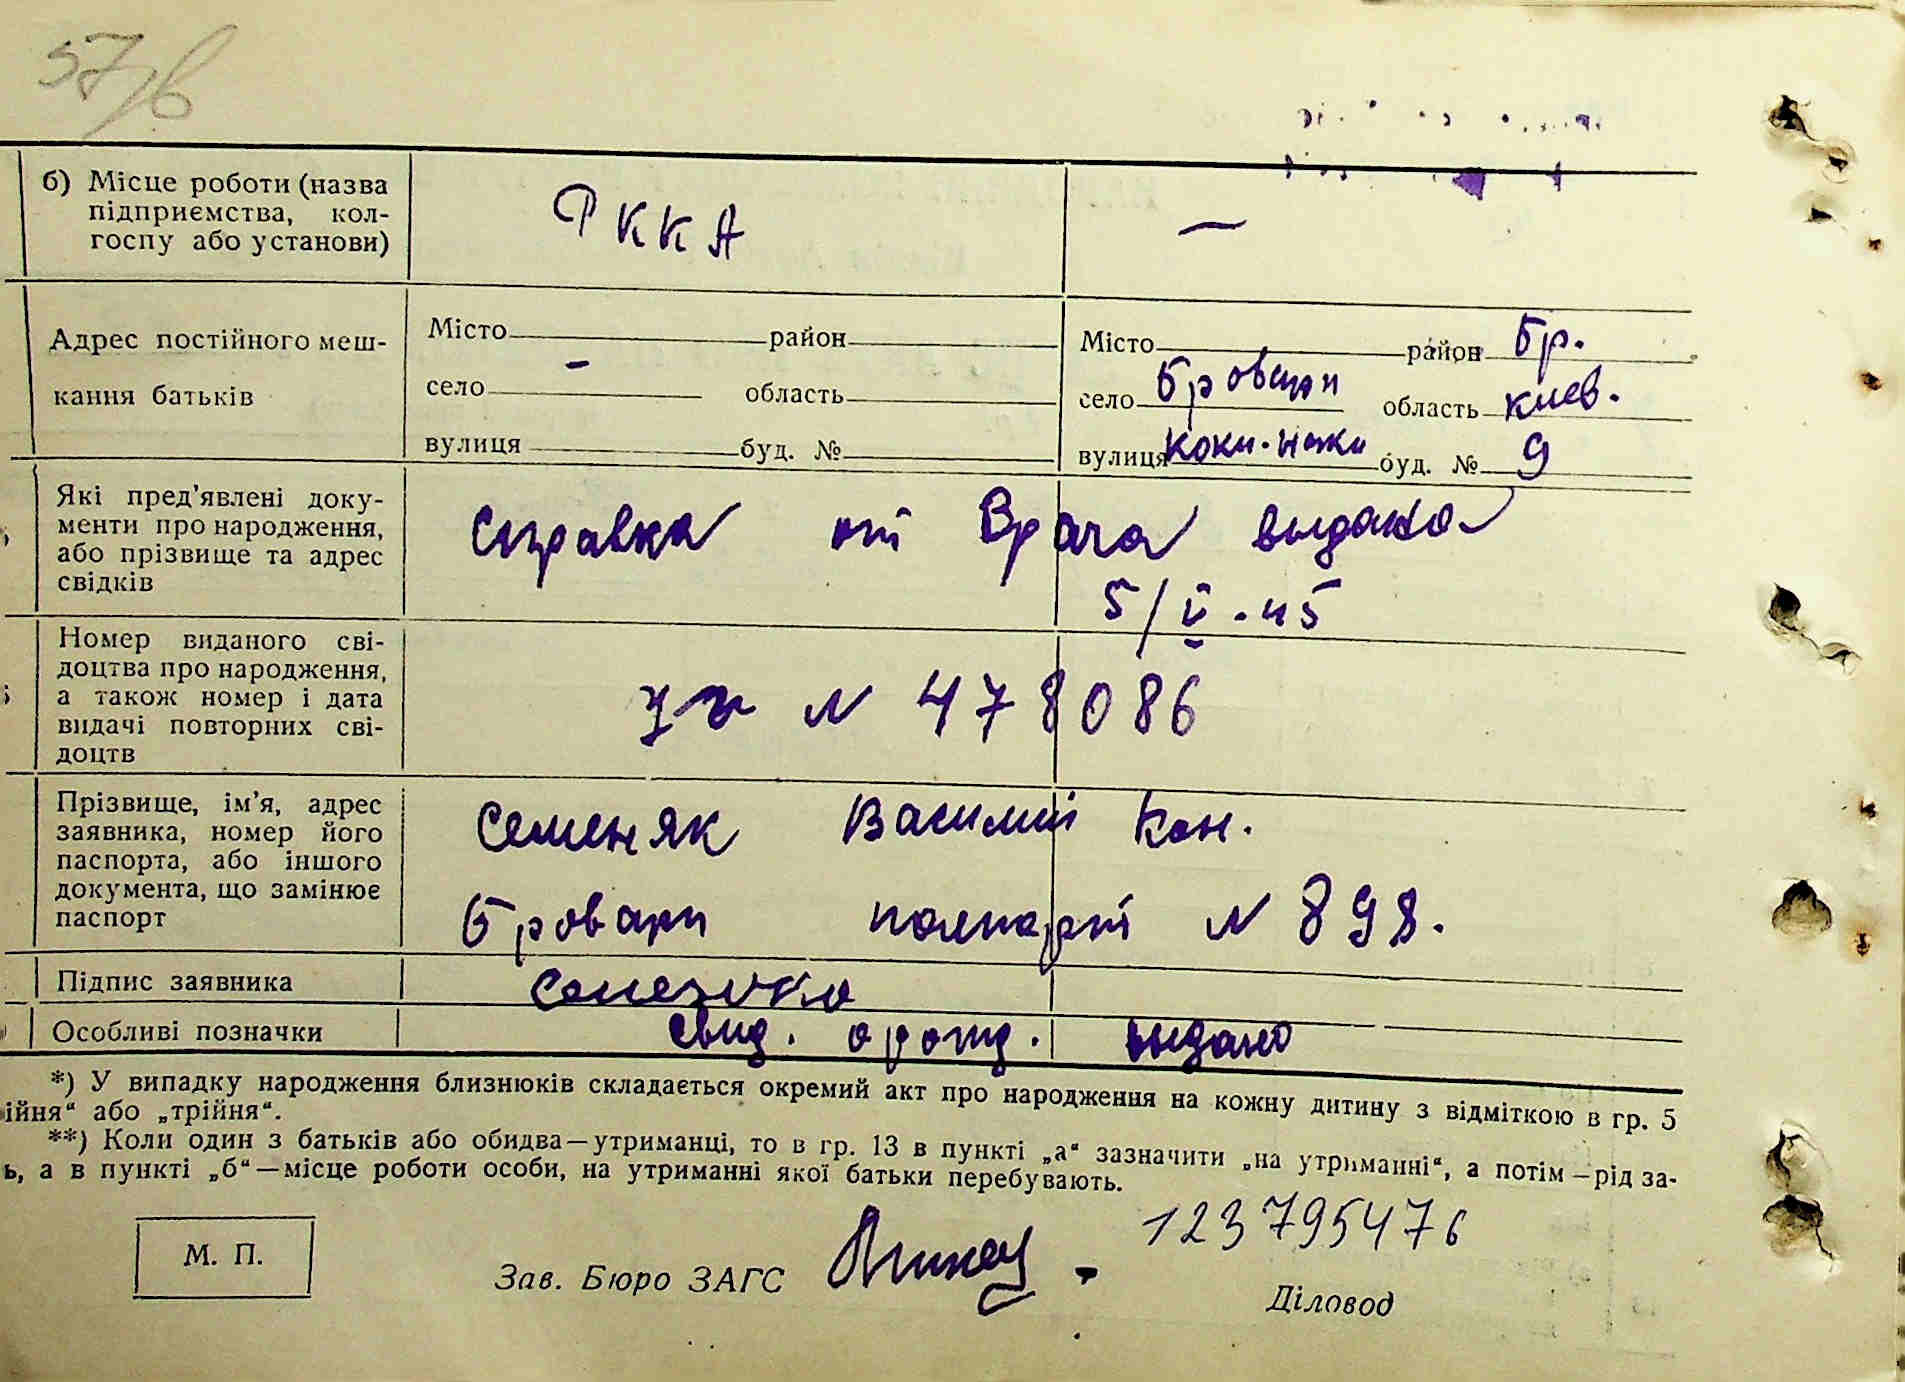 57/в
б) Місце роботи (назва
підприємства, кол-
госпу або установи)
РККА —
Адрес постійного меш-
кання батьків
Місто район
село - область
вулиця буд. №
Місто район Бр.
село Бровари область Киев.
вулиця буд. № 9
Які пред'явлені доку-
менти про народження,
або прізвище та адрес
свідків
справка от Врача выдана
5/V-45
Номер виданого сві-
доцтва про народження,
а також номер і дата
видачі повторних сві-
доцтв
N 478086
Прізвище, ім'я, адрес
заявника, номер його
паспорта, або іншого
документа, що замінює
паспорт
Семеняк Василий Кон.
Бровари N 898.
Підпис заявника
Особливі позначки
свид. о рожд. выдано
*) У випадку народження близнюків складається окремий акт про народження на кожну дитину з відміткою в гр. 5
ійня“ або „трійня“.
**) Коли один з батьків або обидва—утриманці, то в гр. 13 в пункті „а“ зазначити „на утриманні“, а потім—рід за-
ь, а в пункті „б“—місце роботи особи, на утриманні якої батьки перебувають.
М. П.
Зав. Бюро ЗАГС
123795476
Діловод